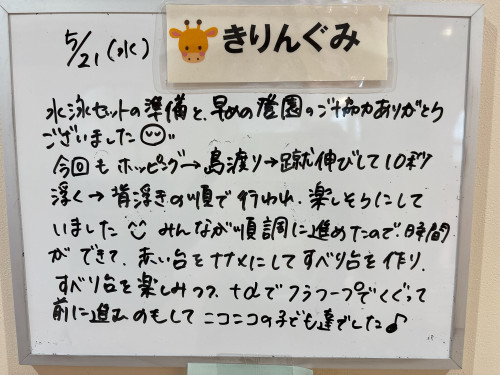 5/21(水)
きりんぐみ
水泳セットの準備と、早めの登園のご協力ありがとう
ございました
今回もホッピング→島渡り→蹴伸びして10秒
浮く→背浮きの順で行われ、楽しそうにして
いました みんなが順調に進めたので、時間
ができて、赤い台をナナメにしてすべり台を作り、
すべり台を楽しみつつ、+αでフラフープでくぐって
前に進むのもして ニコニコの子ども達でした♪